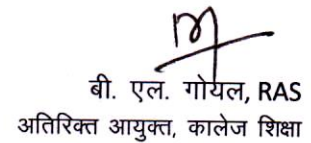 बी. एल. गोयल, RAS
अतिरिक्त आयुक्त, कालेज शिक्षा